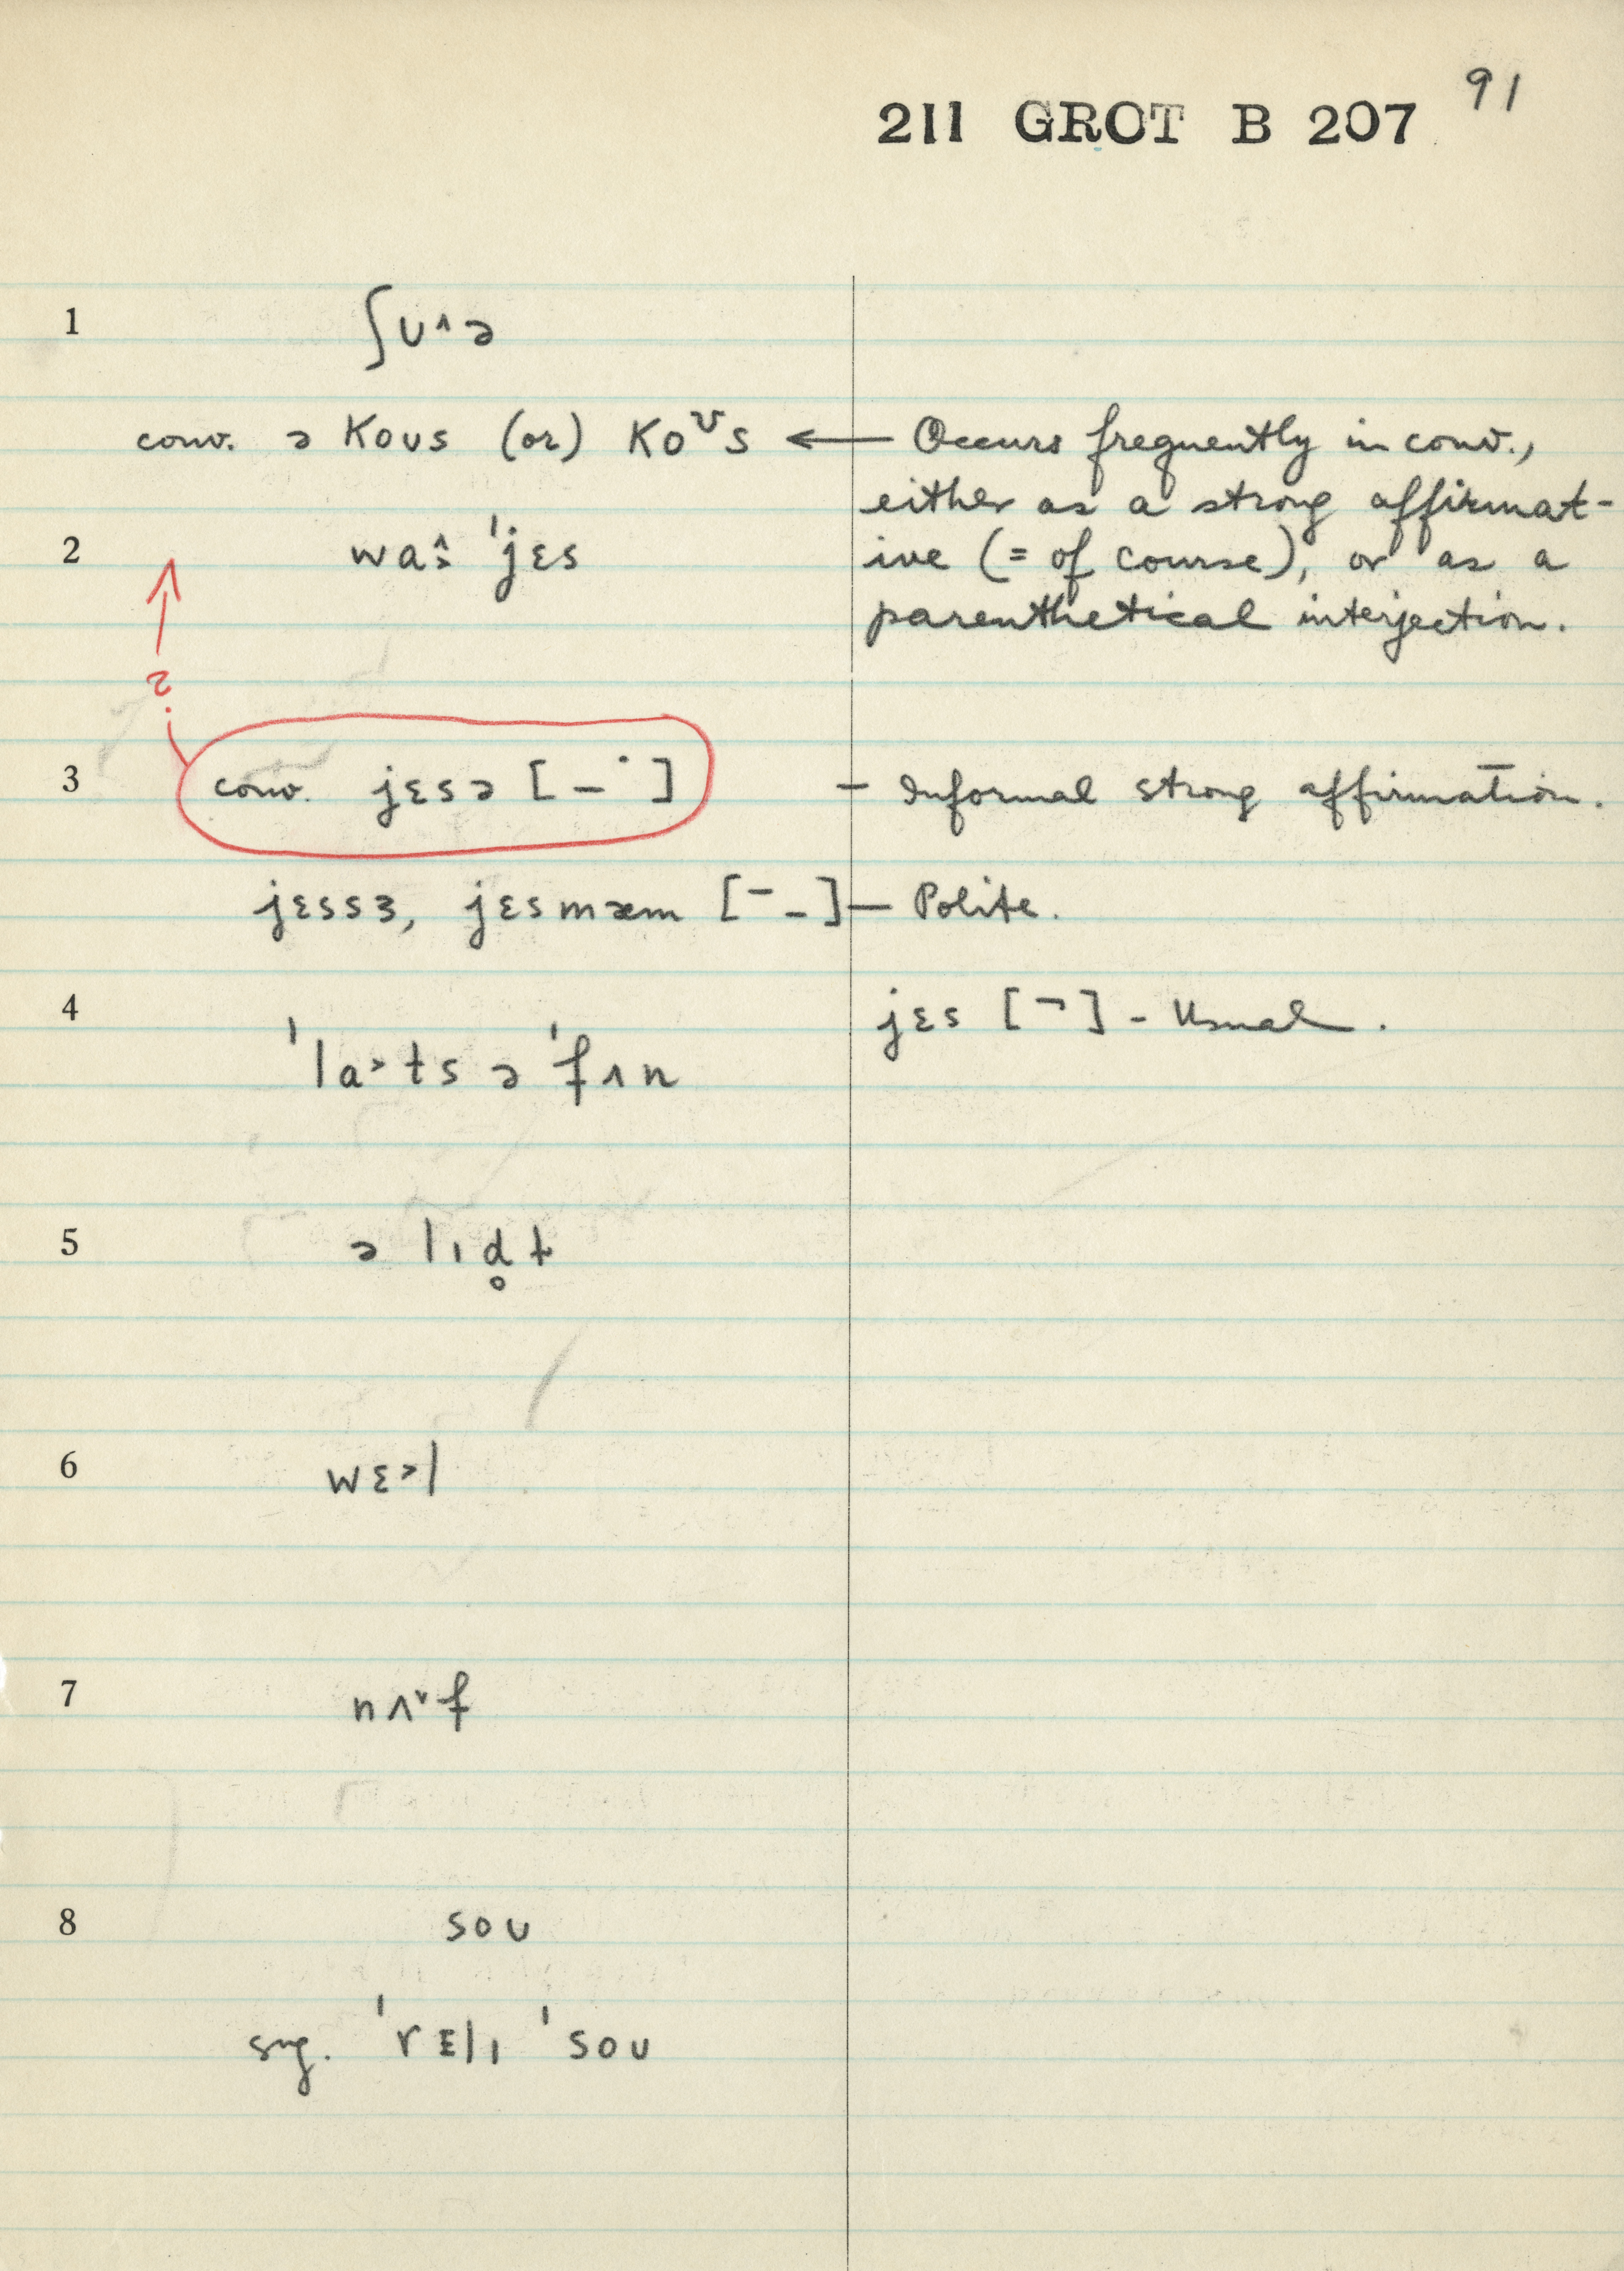 91
211 GROT B 207
1 ʃʊ˄ə
conv. ə koʊs (or) koᵛs ← Occurs frequently in conv.,
either as a strong affirmat-
2 wa˄ː ˈjɛs ive (= of course), or as a
parenthetical interjection.
?
3 conv. jɛsə [ _ ˙ ] – Informal strong affirmation.
jɛssɜ, jɛsmæm [ ¯ _ ] — Polite.
4 jɛs [ ¬ ] - Usual.
ˈla˃ts ə ˈfʌn
5 ə lɪd̥t
6 wɛ˃l
7 nʌ˅f
8 soʊ
sug. ˈrɛlɪ ˈsoʊ